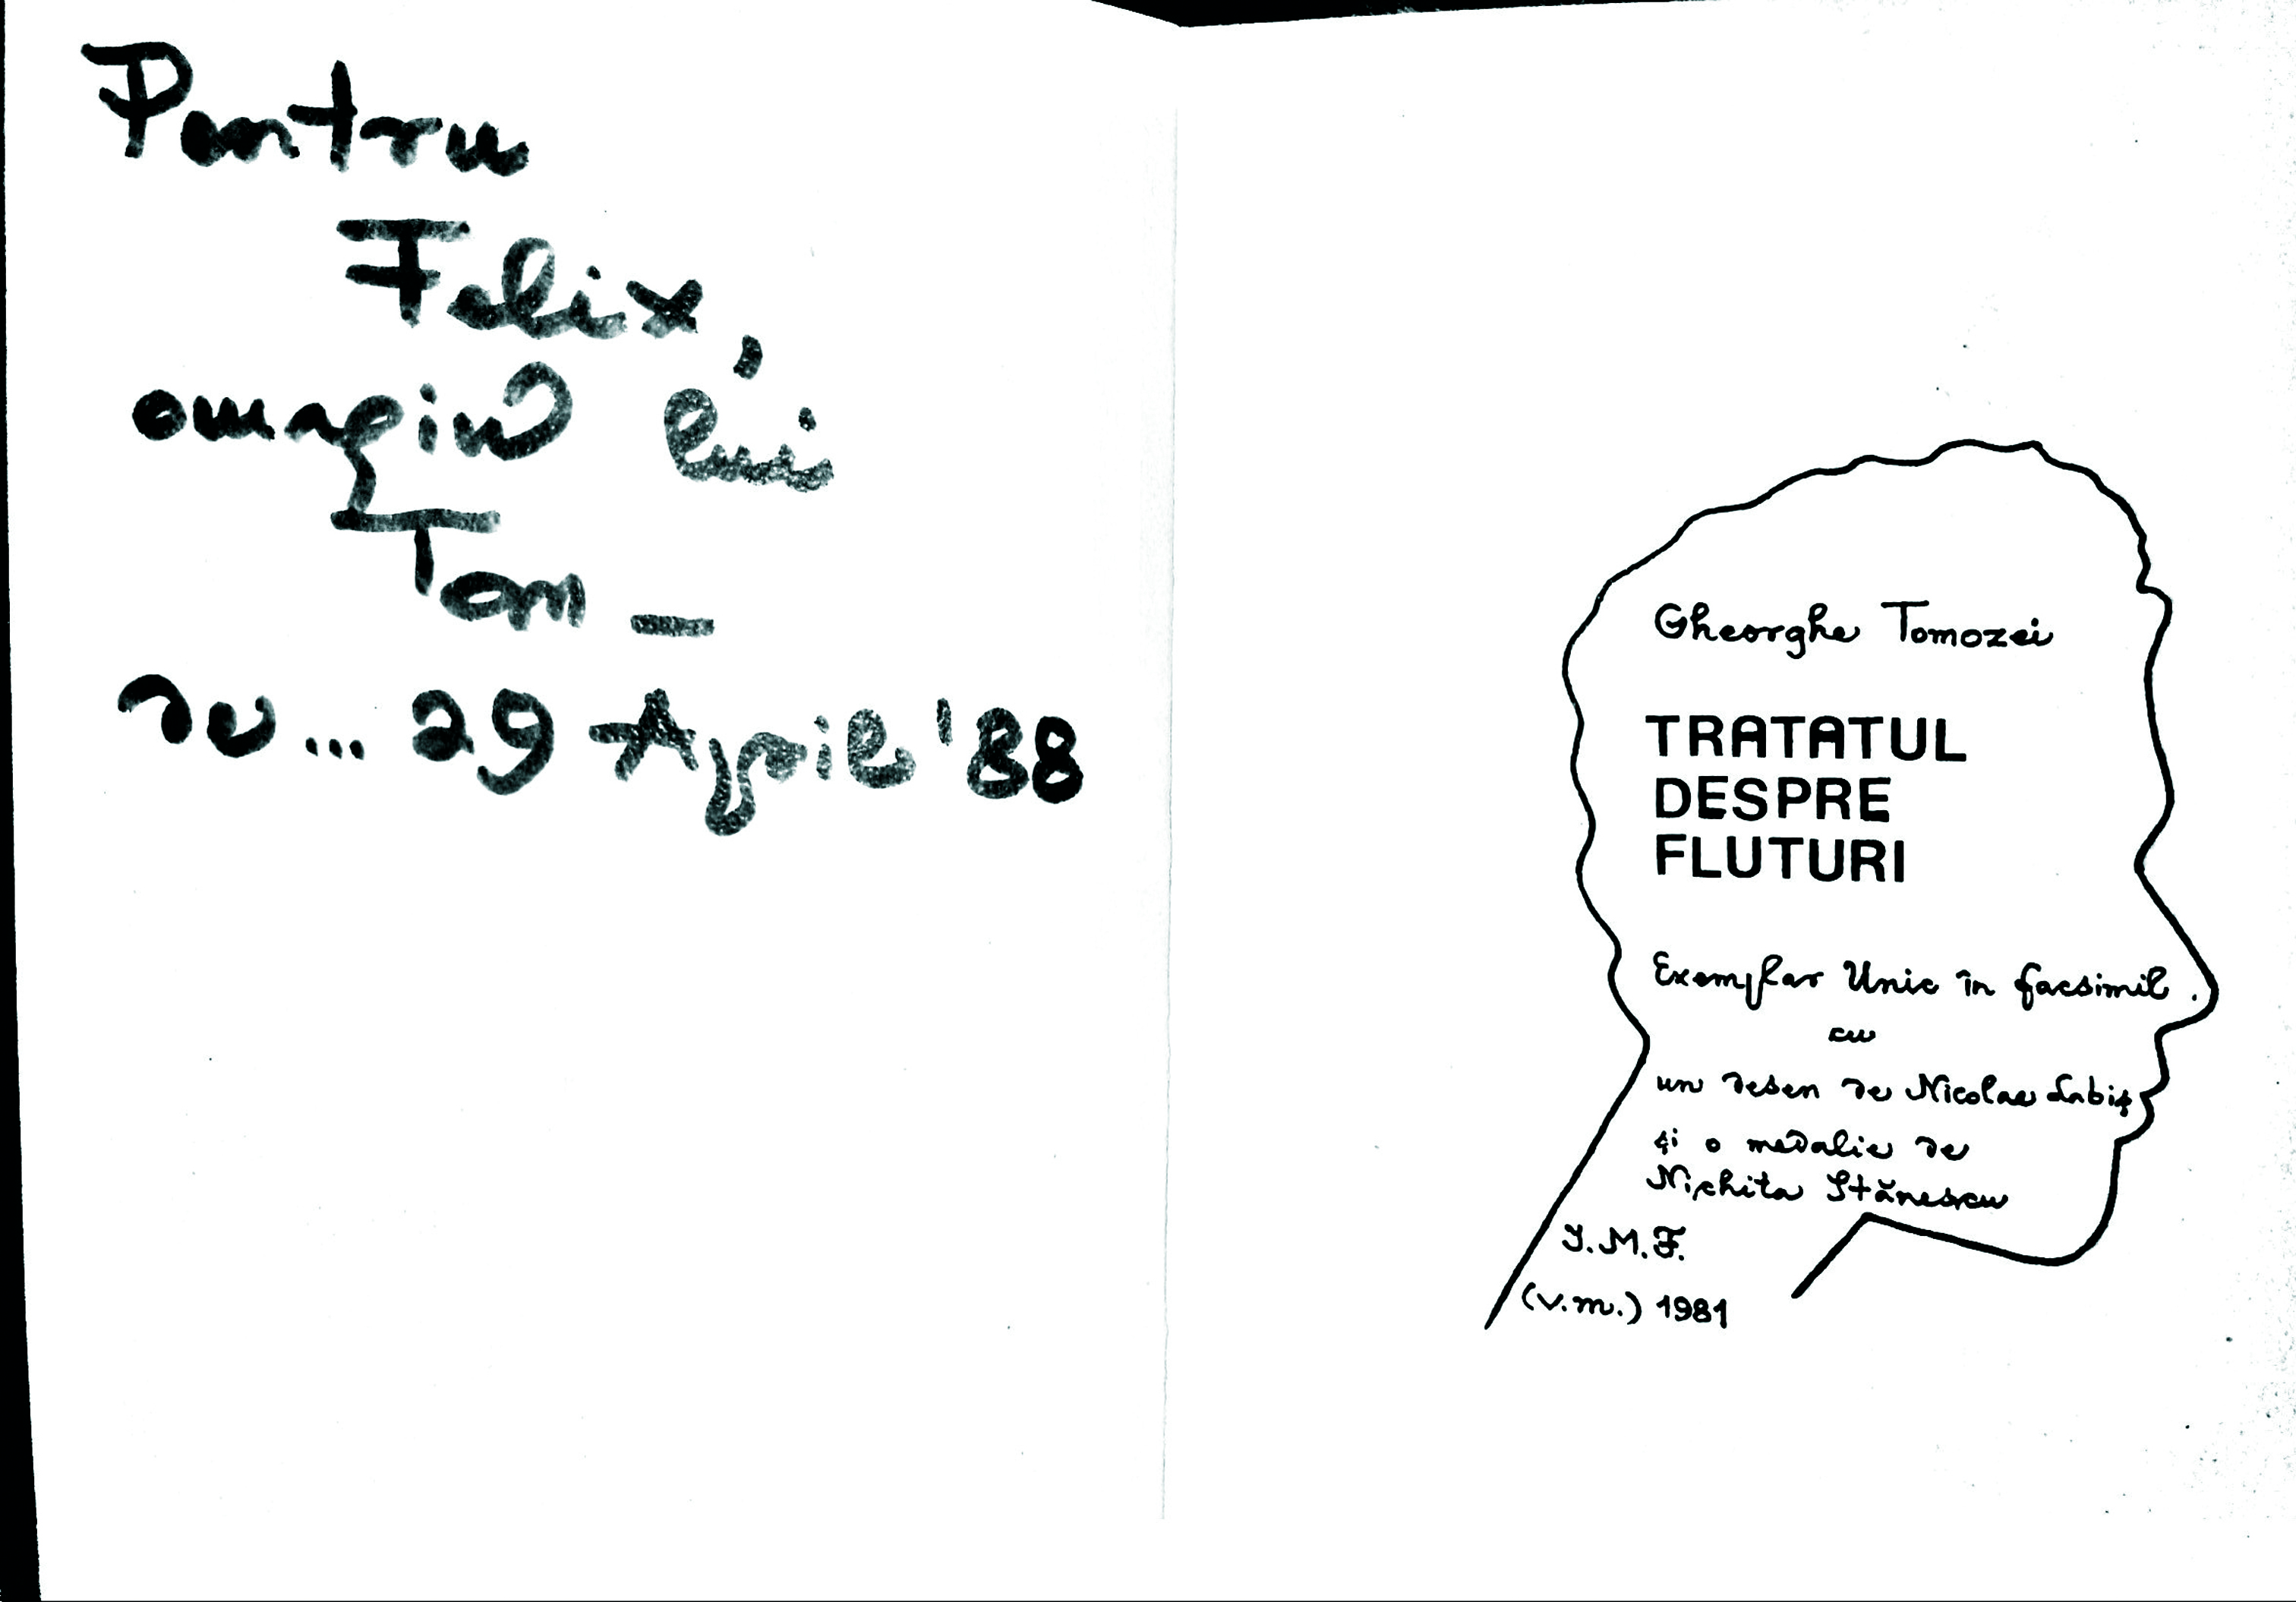 Pentru
Felix,
omagiu lui
Tom –
de ... 29 April '88
Gheorghe Tomozei
TRATATUL
DESPRE
FLUTURI
Exemplar Unic în facsimil.
cu
un desen de Nicolae Labiş
şi o medalie de
Nichita Stănescu
I.M.F.
(v.m.) 1981